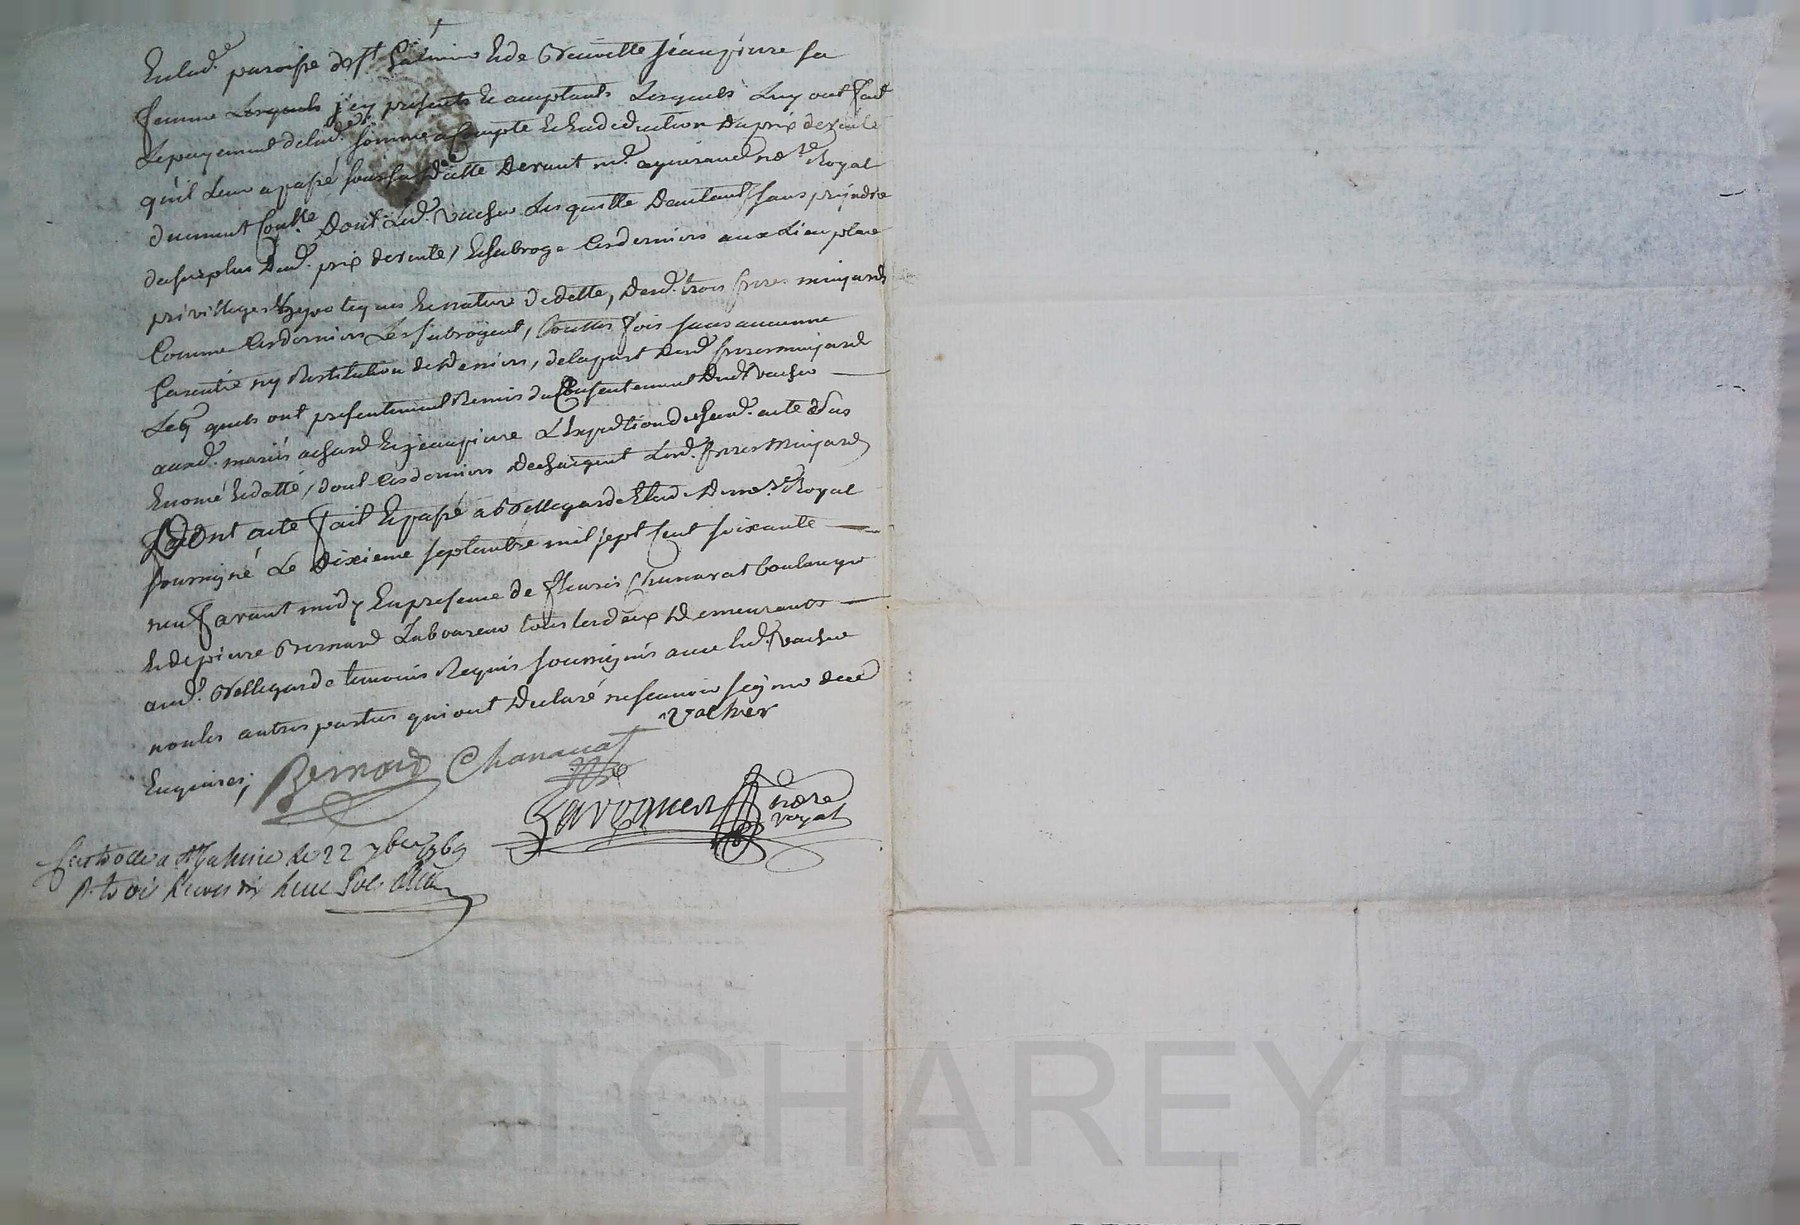 En lad. paroisse de St Galmier et de Benoitte Jeanpierre sa
femme Lesquels icy presents et acceptants Lesquels Luy ont fait
Le payement delad. somme a compte et en deduction Du prix de vente
qu'il Leur a passé sous sa datte Devant me. not.re Royal
Dument Contr. Dont Led. Vacher Les quitte D'autant sans prejudice
du surplus dud. prix de vente, et subroge ces derniers aux Lieu place
privilleges hypoteques et nature de dette, desd. trois freres mayard
Comme ces derniers Les subrogent, touttes fois sans aucunne
Garentie ny Restitution de deniers, de la part desd. freres mayard
Lesquels ont presentement Remis du Consentement dud. Vacher
auxd. mariés achard et jeanpierre L'expedition de lad. acte
Enoncé et datté, dont ces derniers dechargent Lesd. freres mayard
Dont acte fait et passé a Bellegarde Etude de not.re Royal
soussigné Le dixieme septembre mil sept cent soixante
neuf avant midy En presence de fleuris Chanavat boulanger
et de pierre Bernard Laboureur tous les deux Demeurants
aud. Bellegarde temoins Requis soussignés avec led. Vacher
non les autres parties qui ont Declaré ne scavoir signer de ce
Enquises;
Vacher
Bernard Chanavat
not.re
royal
Controlle a St Galmier le 22 7bre 1769